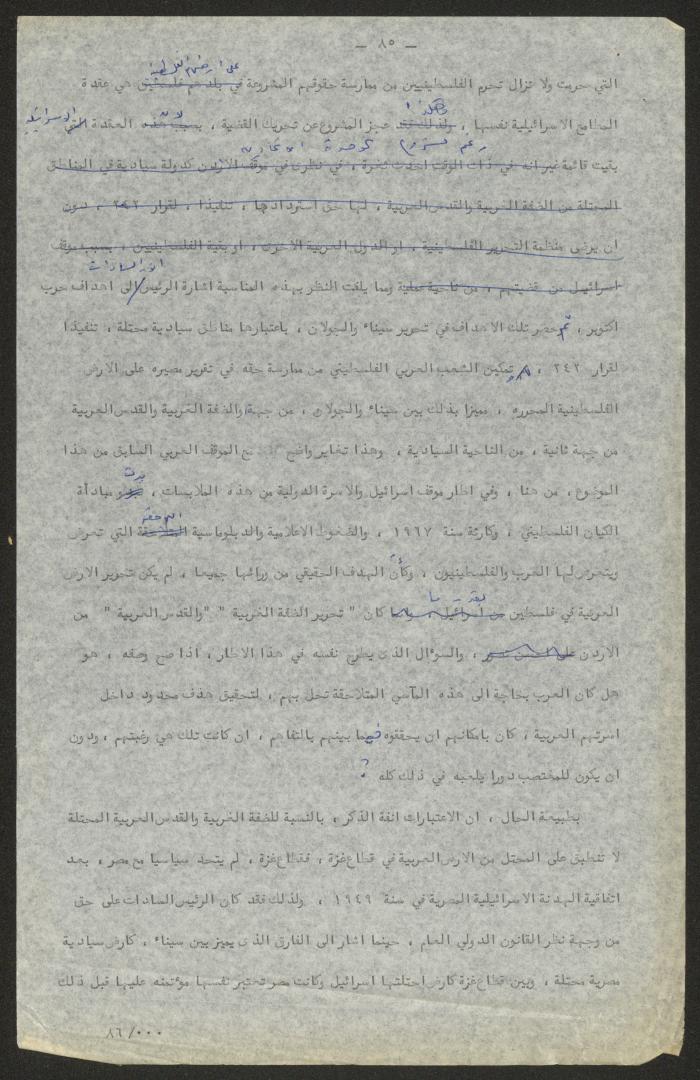 — ٨٥ —
على ارضهم الفلسطينية
التي حرمت ولا تزال تحرم الفلسطينيين من ممارسة حقوقهم المشروعة في بلدهم فلسطين هي عقدة
وهكذا لان الاسرائيلية
المطامع الاسرائيلية نفسها ، ولذلك فقد عجز المشروع عن تحريك القضية ، بسبب هذه العقدة التي
رغم
بقيت قائمة غير انه في ذات الوقت احدث ثغرة ، في نظري في موقف الاردن كدولة سيادية في المناطق
المحتلة من الضفة الغربية والقدس العربية ، لها حق استردادها ، تنفيذا ، لقرار ٢٤٢ ، دون
ان يرضى منظمة التحرير الفلسطينية ، او الدول العربية الاخرى ، او بقية الفلسطينيين ، بسبب موقف
السادات
اسرائيل من قضيتهم ، من ناحية عملية ومما يلفت النظر بهذه المناسبة اشارة الرئيس الى اهداف حرب
اكتوبر ، ثم حصر تلك الاهداف في تحرير سيناء والجولان ، باعتبارها مناطق سيادية محتلة ، تنفيذا
لقرار ٢٤٢ ، تمكين الشعب العربي الفلسطيني من ممارسة حقه في تقرير مصيره على الارض
الفلسطينية المحررة ، مميزا بذلك بين سيناء والجولان ، من جهة والضفة الغربية والقدس العربية
من جهة ثانية ، من الناحية السيادية ، وهذا تغاير واضح مع الموقف العربي السابق من هذا
الموضوع ، من هنا ، وفي اطار موقف اسرائيل والاسرة الدولية من هذه الملابسات ، بدت مبادأة
اللاحقة
الكيان الفلسطيني ، وكارثة سنة ١٩٦٧ ، والضغوط الاعلامية والدبلوماسية التي تعرض
ويتعرض لها العرب والفلسطينيون ، وكأن الهدف الحقيقي من ورائها جميعا ، لم يكن تحرير الارض
بقدر ما
العربية في فلسطين من اسرائيل ، وانما كان " تحرير الضفة الغربية " "والقدس العربية " من
الاردن ، والسوءال الذى يطرح نفسه في هذا الاطار ، اذا صح وصفه ، هو
هل كان العرب بحاجة الى هذه المآسي المتلاحقة تحل بهم ، لتحقيق هدف محدود داخل
اسرتهم العربية ، كان بامكانهم ان يحققوه فيما بينهم بالتفاهم ، ان كانت تلك هي رغبتهم ، ودون
ان يكون للمغتصب دورا يلعبه في ذلك كله ؟
بطبيعة الحال ، ان الاعتبارات انفة الذكر ، بالنسبة للضفة الغربية والقدس العربية المحتلة
لا تنطبق على المحتل من الارض العربية في قطاع غزة ، فقطاع غزة ، لم يتحد سياسيا مع مصر ، بعد
اتفاقية الهدنة الاسرائيلية المصرية في سنة ١٩٤٩ ، ولذلك فقد كان الرئيس السادات على حق
من وجهة نظر القانون الدولي العام ، حينما اشار الى الفارق الذى يميز بين سيناء ، كارض سيادية
مصرية محتلة ، وبين قطاع غزة كارض احتلتها اسرائيل وكانت مصر تعتبر نفسها موءتمنه عليها قبل ذلك
٨٦/٠٠٠